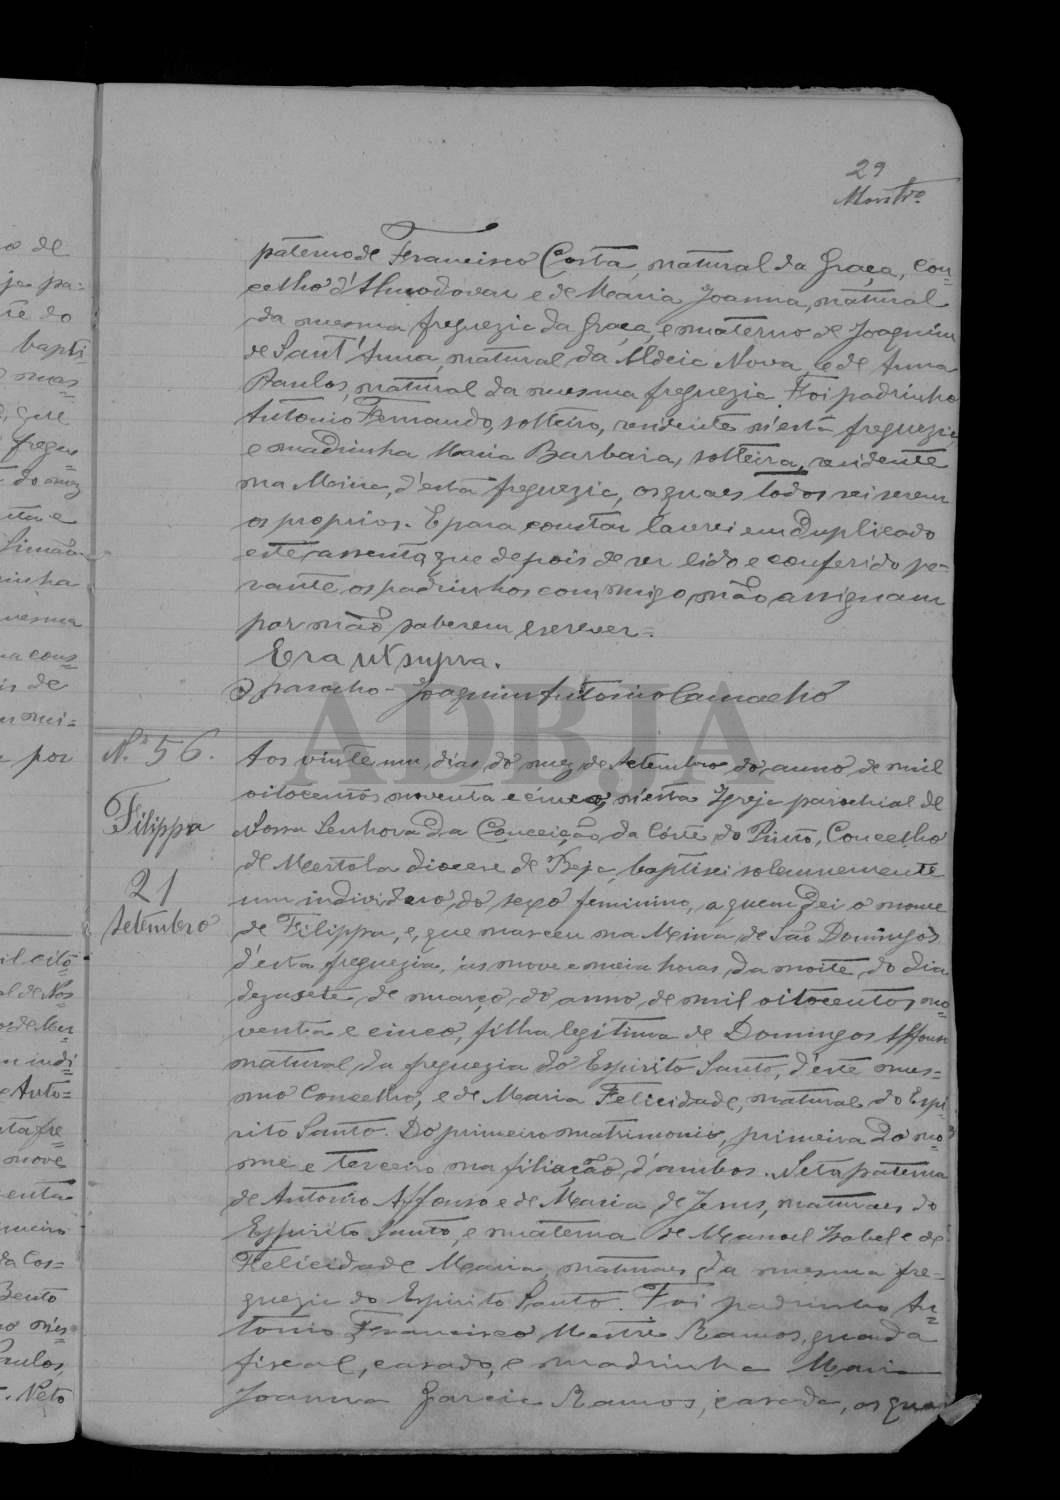 29
paterno de Francisco Costa, natural da Graça, con=
celho d'Almodovar e de Maria Joanna, natural
da mesma freguezia da Graça, e materno de Joaquim
de Sant'Anna, natural da Aldeia Nova, e de Anna
Paulos, natural da mesma freguezia. Foi padrinho
Antonio Fernando, solteiro, residente n'esta freguezia,
e madrinha Maria Barbara, solteira, residente
na Mina, d'esta freguezia, os quaes todos sei serem
os proprios. E para constar lavrei em duplicado
este assento, que depois de ser lido e conferido pe-
rante os padrinhos commigo não assignam
por não saberem escrever=
Era ut supra.
O parocho - Joaquim Antonio Camacho
ADBJA
N.º 56.
Filippa
21
Setembro
Aos vinte um dias do mez de Setembro do anno de mil
oitocentos noventa e cinco, n'esta Igreja parochial de
Nossa Senhora da Conceição da Côrte do Pinto, Concelho
de Mertola diocese de Beja, baptisei solemnemente
um individuo do sexo feminino, a quem dei o nome
de Filippa, e, que nasceu na Mina de São Domingos
d'esta freguezia, ás nove e meia horas da noite do dia
dezasete de março do anno de mil oitocentos no=
venta e cinco, filha legitima de Domingos Affonso
natural da freguezia do Espirito Santo, d'este mes=
mo Concelho, e de Maria Felicidade, natural do Espi=
rito Santo. Do primeiro matrimonio, primeira do no=
me e terceiro na filiação d'ambos. Neta paterna
de Antonio Affonso e de Maria de Jesus, naturaes do
Espirito Santo, e materna de Manoel Izabel e de
Felicidade Maria, naturaes da mesma fre=
guezia do Espirito Santo. Foi padrinho An=
tonio Francisco Mestre Ramos, guarda
fiscal, casado, e madrinha Maria
Joanna Garcia Ramos, casada, os quaes